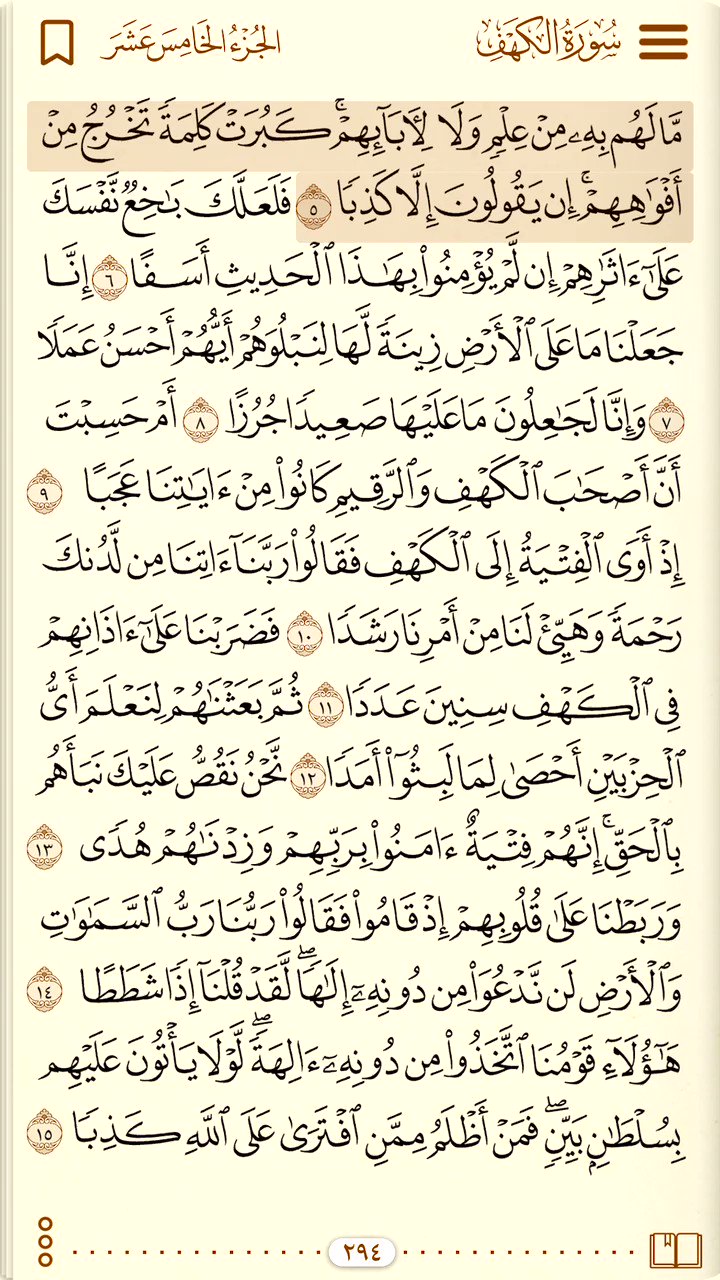 سُورَةُ الكَهْفِ
الجُزْءُ الخَامِسَ عَشَرَ
مَّا لَهُم بِهِۦ مِنْ عِلْمٍ وَلَا لِأٓبَآئِهِمْۚ كَبُرَتْ كَلِمَةً تَخْرُجُ مِنْ
أَفْوَٰهِهِمْۚ إِن يَقُولُونَ إِلَّا كَذِبًا ٥ فَلَعَلَّكَ بَٰخِعٌ نَّفْسَكَ
عَلَىٰٓ ءَاثَٰرِهِمْ إِن لَّمْ يُؤْمِنُوا۟ بِهَٰذَا ٱلْحَدِيثِ أَسَفًا ٦ إِنَّا
جَعَلْنَا مَا عَلَى ٱلْأَرْضِ زِينَةً لَّهَا لِنَبْلُوَهُمْ أَيُّهُمْ أَحْسَنُ عَمَلًا
٧ وَإِنَّا لَجَٰعِلُونَ مَا عَلَيْهَا صَعِيدًا جُرُزًا ٨ أَمْ حَسِبْتَ
أَنَّ أَصْحَٰبَ ٱلْكَهْفِ وَٱلرَّقِيمِ كَانُوا۟ مِنْ ءَايَٰتِنَا عَجَبًا ٩
إِذْ أَوَى ٱلْفِتْيَةُ إِلَى ٱلْكَهْفِ فَقَالُوا۟ رَبَّنَآ ءَاتِنَا مِن لَّدُنكَ
رَحْمَةً وَهَيِّئْ لَنَا مِنْ أَمْرِنَا رَشَدًا ١٠ فَضَرَبْنَا عَلَىٰٓ ءَاذَانِهِمْ
فِى ٱلْكَهْفِ سِنِينَ عَدَدًا ١١ ثُمَّ بَعَثْنَٰهُمْ لِنَعْلَمَ أَىُّ
ٱلْحِزْبَيْنِ أَحْصَىٰ لِمَا لَبِثُوٓا۟ أَمَدًا ١٢ نَّحْنُ نَقُصُّ عَلَيْكَ نَبَأَهُم
بِٱلْحَقِّۚ إِنَّهُمْ فِتْيَةٌ ءَامَنُوا۟ بِرَبِّهِمْ وَزِدْنَٰهُمْ هُدًى ١٣
وَرَبَطْنَا عَلَىٰ قُلُوبِهِمْ إِذْ قَامُوا۟ فَقَالُوا۟ رَبُّنَا رَبُّ ٱلسَّمَٰوَٰتِ
وَٱلْأَرْضِ لَن نَّدْعُوَا۟ مِن دُونِهِۦٓ إِلَٰهًاۖ لَّقَدْ قُلْنَآ إِذًا شَطَطًا ١٤
هَٰٓؤُلَآءِ قَوْمُنَا ٱتَّخَذُوا۟ مِن دُونِهِۦٓ ءَالِهَةًۖ لَّوْلَا يَأْتُونَ عَلَيْهِم
بِسُلْطَٰنٍۭ بَيِّنٍۖ فَمَنْ أَظْلَمُ مِمَّنِ ٱفْتَرَىٰ عَلَى ٱللَّهِ كَذِبًا ١٥
٢٩٤